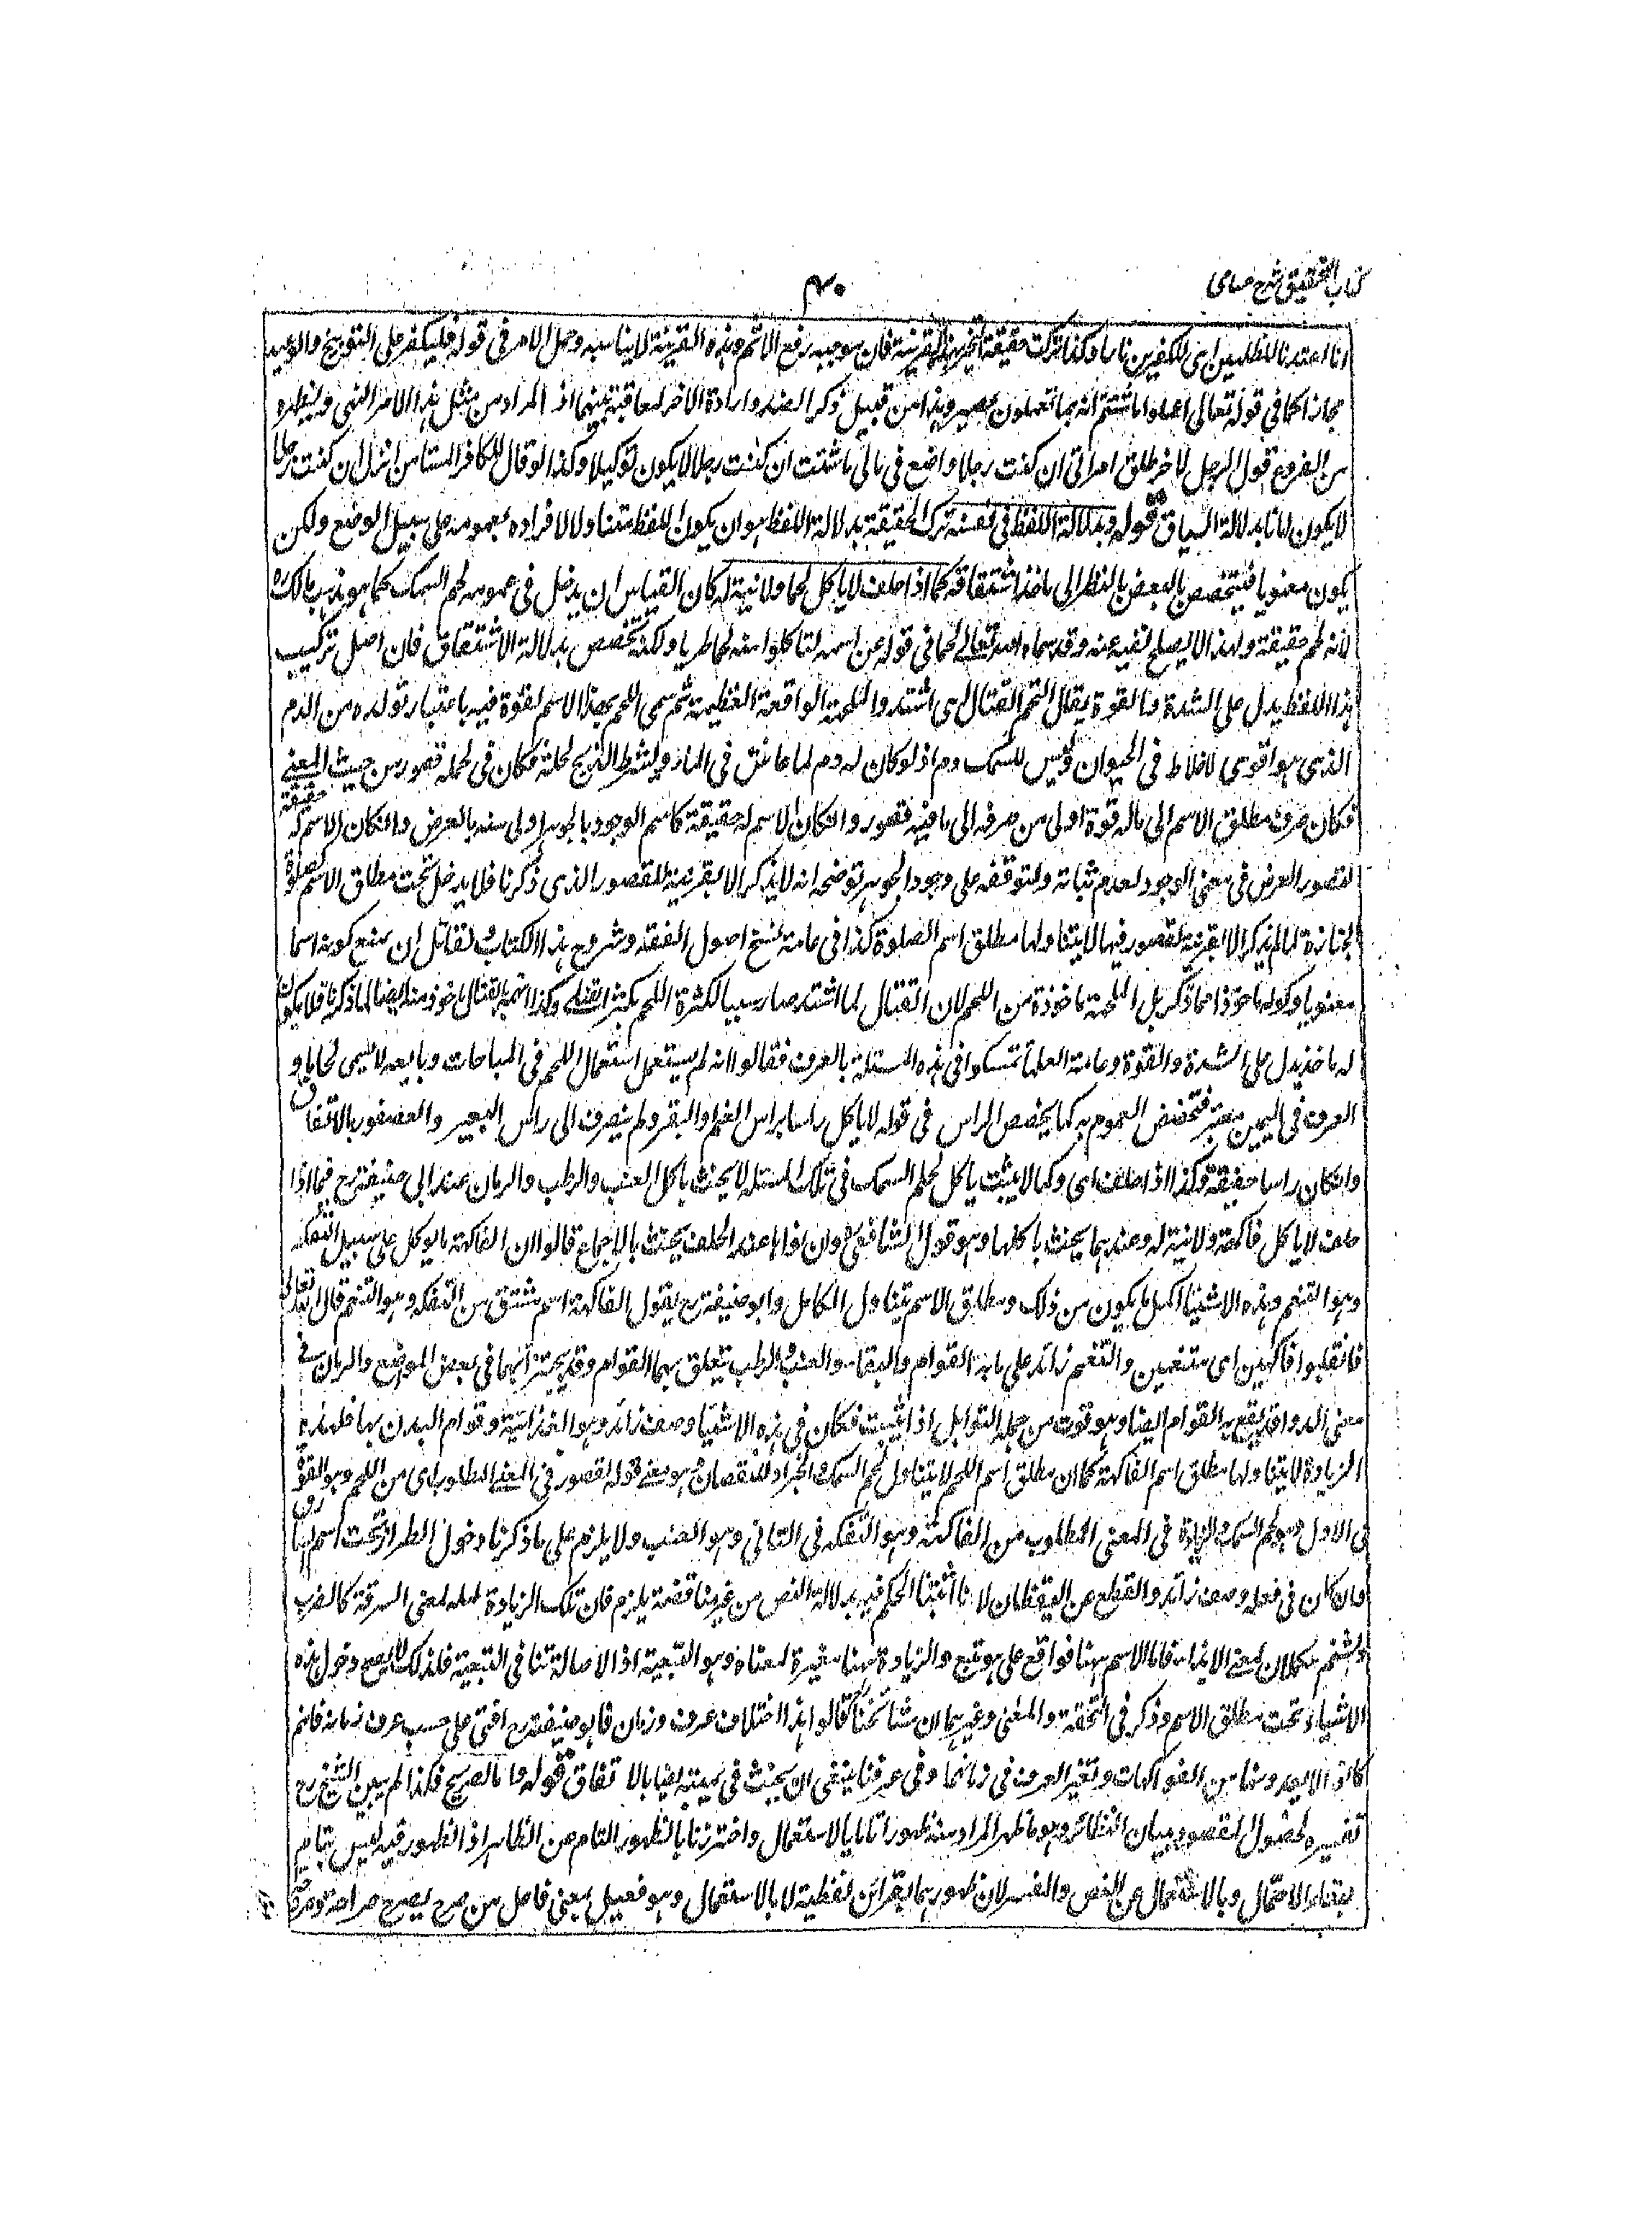 كتاب التحقيق شرح حسامى
۴۰
انا اعتدنا للظلمين اى للكفرين نارا وكذا تركت حقيقة التخيير بهذه القرينة فان موجبه رفع الاثم وهذه القرينة لا يناسبه وحمل الامر فى قوله فليكفر على التوبيخ والوعيد
مجازا كما فى قوله تعالى اعملوا ما شئتم انه بما تعملون بصير وهذا من قبيل ذكر الضد وارادة الاخر لمعاقبة بينهما اذ المراد من مثل هذا الامر النهى ونظيره
من الفروع قول الرجل لاخر طلق امراتى ان كنت رجلا واضع فى مالى ما شئت ان كنت رجلا لا يكون توكيلا وكذا لو قال للكافر المستامن انزل ان كنت رجلا
لا يكون امانا بدلالة السياق قوله وبدلالة اللفظ فى نفسه ترك الحقيقة بدلالة اللفظ هو ان يكون اللفظ متناولا لافراده بعمومه على سبيل الوضع ولكن
يكون معنويا فيتخصص بالبعض بالنظر الى ماخذ اشتقاقه كما اذا حلف لا ياكل لحما ولا نية له كان القياس ان يدخل فى عمومه لحم السمك كما هو مذهب مالك ره
لانه لحم حقيقة ولهذا لا يصلح نفيه عنه وقد سماه الله تعالى لحما فى قوله عن اسمه لتاكلوا منه لحما طريا ولكنه تخصص بدلالة الاشتقاق فان اصل تركيب
هذا اللفظ يدل على الشدة والقوة يقال التحم القتال اى اشتد والملحمة الواقعة العظيمة ثم سمى اللحم بهذا الاسم لقوة فيه باعتبار تولده من الدم
الذى هو اقوى الاخلاط فى الحيوان وليس للسمك دم اذ لو كان له دم لما عاش فى الماء ولشرط الذبح لحله فكان فى لحمه قصور من حيث المعنى
فكان صرف مطلق الاسم الى ما له قوة اولى من صرفه الى ما فيه قصور وان كان الاسم له حقيقة كاسم الوجود بالجوهر اولى منه بالعرض وان كان الاسم له حقيقة
لقصور العرض فى معنى الوجود لعدم ثباته ولتوقفه على وجود الجوهر توضحه انه لا يذكر الا بقرينة للقصور الذى ذكرنا فلا يدخل تحت مطلق الاسم كصلوة
الجنازة لما لم يذكر الا بقرينة لقصور فيها لا يتناولها مطلق اسم الصلوة كذا فى عامة نسخ اصول الفقه وشروح هذا الكتاب ولقائل ان يمنع كونه اسما
معنويا وكونه ماخوذا مما ذكر بل الملحمة ماخوذة من اللحم لان القتال لما اشتد صار سببا لكثرة اللحم بكثرة القتلى وكذا التحم القتال ماخوذ منه ايضا لما ذكرنا فلا يكون
له ماخذ يدل على الشدة والقوة وعامة العلماء تمسكوا فى هذه المسئلة بالعرف فقالوا انه لم يستعمل استعمال اللحم فى المباحات وبايعه لا يسمى لحاما و
العرف فى اليمين معتبر فتخصص العموم به كما يخصص الراس فى قوله لا ياكل راسا براس الغنم والبقر ولم ينصرف الى راس البعير والعصفور بالاتفاق
وان كان راسا حقيقة قوله وكذا اذا حلف اى وكما لا يحنث ياكل لحم السمك فى تلك المسئلة لا يحنث باكل العنب والرطب والرمان عند ابى حنيفة رح فيما اذا
حلف لا ياكل فاكهة ولا نية له وعندهما يحنث باكلها وهو قول الشافعى رح وان نواها عند الحلف يحنث بالاجماع قالوا ان الفاكهة ما يوكل على سبيل التفكه
وهو التنعم وهذه الاشياء اكمل ما يكون من ذلك ومطلق الاسم يتناول الكامل وابو حنيفة رح يقول الفاكهة اسم مشتق من التفكه وهو التنعم قال الله تعالى
فانقلبوا فاكهين اى متنعمين والتنعم زائد على ما به القوام والبقاء والعنب والرطب يتعلق بهما القوام وقد يجتزا بهما فى بعض المواضع والرمان فى
معنى الدواء قد يقع به القوام ايضا وهو قوت من جملة التوابل اذا يبست فكان فى هذه الاشياء وصف زائد وهو الغذائية وقوام البدن بها فلهذه
الزيادة لا يتناولها مطلق اسم الفاكهة كما ان مطلق اسم اللحم لا يتناول لحم السمك والجراد للنقصان وهو معنى قوله لقصور فى المعنى المطلوب اى من اللحم وهو القوة
فى الاول وهو لحم السمك والزيادة فى المعنى المطلوب من الفاكهة وهو التفكه فى الثانى وهو العنب ولا يلزم على ما ذكرنا دخول الطرار تحت اسم السارق
وان كان فى فعله وصف زائد والقطع عن اليقظان لانا اثبتنا الحكم فيه بدلالة النص من غير مناقضة يلزم فان تلك الزيادة مكملة لمعنى السرقة كالضرب
والشتم مكملان لمعنى الايذاء فاما الاسم ههنا فواقع على ما هو تبع والزيادة ههنا مغيرة لمعناه وهو التبعية اذ الاصالة تنافى التبعية فلذلك لا يصح دخول هذه
الاشياء تحت مطلق الاسم وذكر فى التحفة والمغنى وغيرهما ان مشائخنا قالوا هذا اختلاف عرف وزمان فابو حنيفة رح افتى على حسب عرف زمانه فانهم
كانوا لا يعدونها من الفواكهات وتغير العرف فى زمانهما وفى عرفنا ينبغى ان يحنث فى يمينه ايضا بالاتفاق قوله واما الصريح فكذا لم يبين الشيخ رح
تفسيره لحصول المقصود ببيان النظائر وهو ما ظهر المراد منه ظهورا تاما بالاستعمال واحترزنا بالظهور التام عن الظاهر اذ الظهور فيه ليس بتام
لبقاء الاحتمال وبالاستعمال عن النص والمفسر لان ظهورهما بقرائن لفظية لا بالاستعمال وهو فعيل بمعنى فاعل من صرح يصرح صراحة